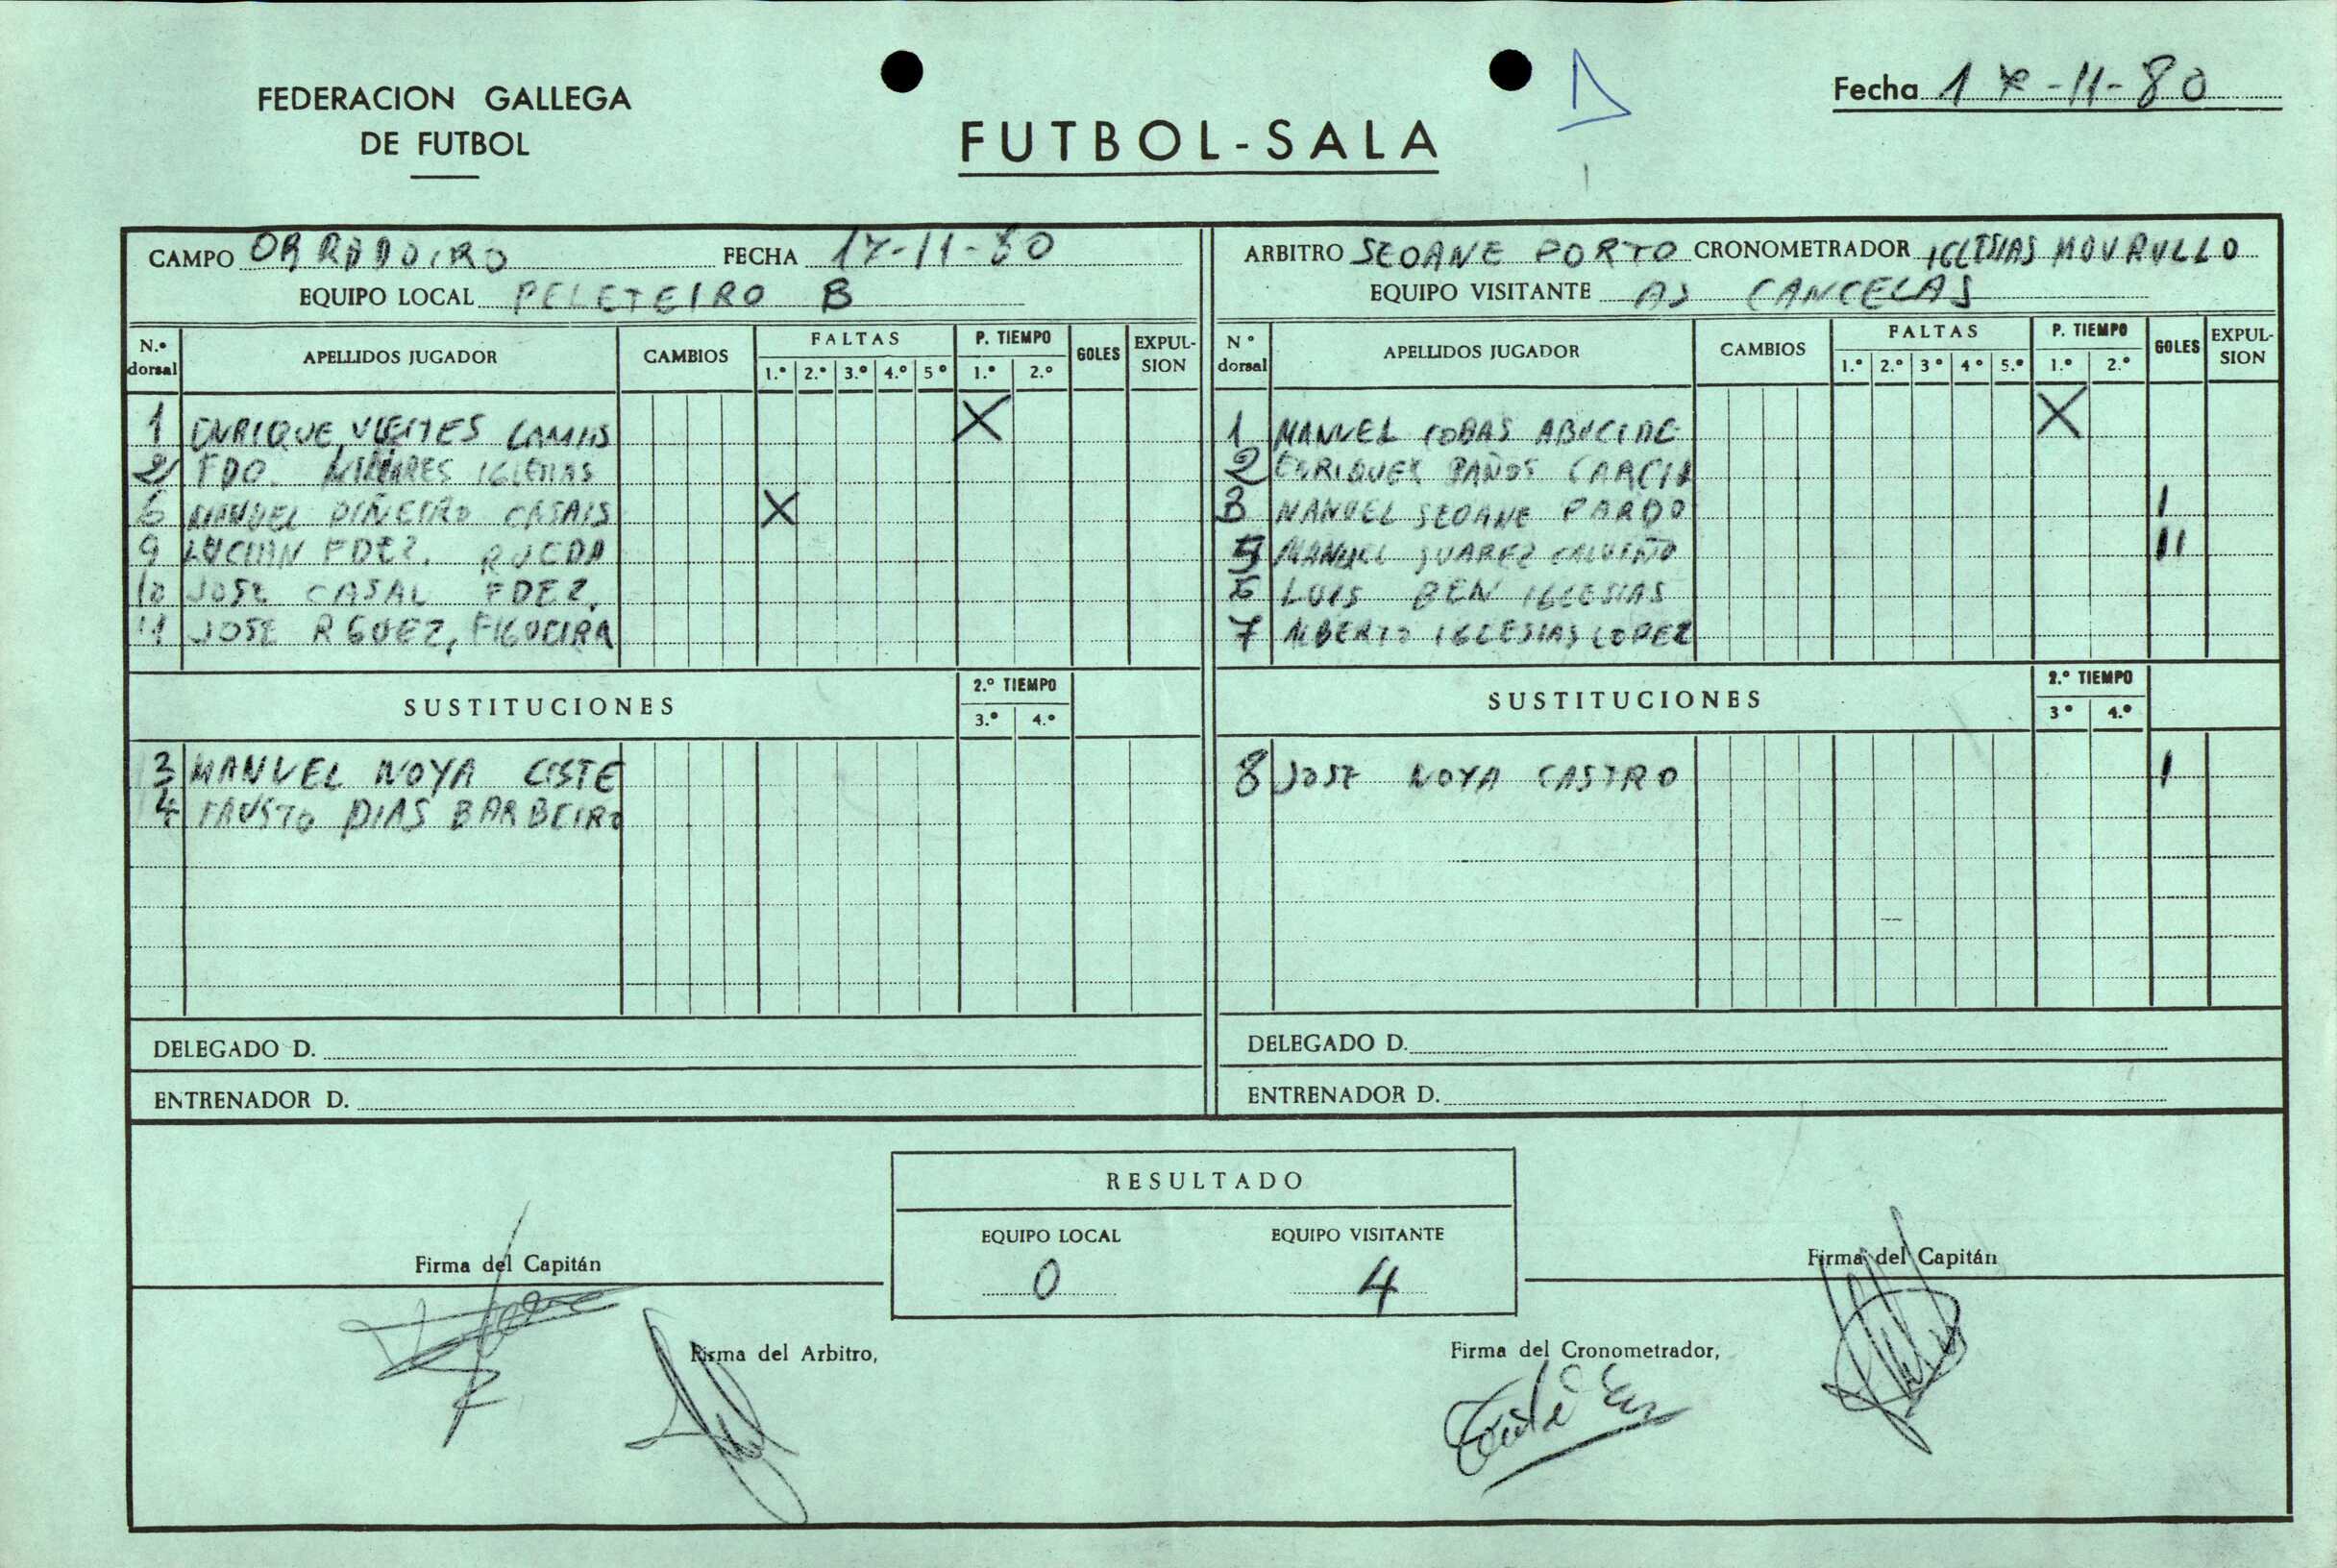 FEDERACION GALLEGA
DE FUTBOL
FUTBOL-SALA
Fecha 17-11-80
CAMPO OBRADOIRO FECHA 17-11-80
EQUIPO LOCAL PELETEIRO B
N.º dorsal APELLIDOS JUGADOR CAMBIOS FALTAS 1.º 2.º 3.º 4.º 5º P. TIEMPO 1.º 2.º GOLES EXPUL-SION
1 ENRIQUE VIEITES X
2 FDO. MIRARES IGLESIAS
6 MANUEL PIÑEIRO CASAIS X
9 LUCIAN FDEZ. RUEDA
10 JOSE CASAL FDEZ.
11 JOSE RGUEZ, FIGUEIRA
SUSTITUCIONES 2.º TIEMPO 3.º 4.º
3 MANUEL NOYA CISTE
4 FAUSTO DIAS BARBEIRO
DELEGADO D.
ENTRENADOR D.
ARBITRO SEOANE PORTO CRONOMETRADOR IGLESIAS MOURULLO
EQUIPO VISITANTE AS CANCELAS
Nº dorsal APELLIDOS JUGADOR CAMBIOS FALTAS 1.º 2.º 3º 4º 5.º P. TIEMPO 1.º 2.º GOLES EXPUL-SION
1 MANUEL COBAS X
2 ENRIQUEZ BAÑOS GARCIA
3 MANUEL SEOANE PARDO I
5 MANUEL SUAREZ CALVIÑO II
6 LUIS BEN IGLESIAS
7 ALBERTO IGLESIAS LOPEZ
SUSTITUCIONES 2.º TIEMPO 3º 4.º
8 JOSE NOYA CASTRO I
DELEGADO D.
ENTRENADOR D.
RESULTADO
EQUIPO LOCAL EQUIPO VISITANTE
0 4
Firma del Capitán
Firma del Capitán
Firma del Arbitro,
Firma del Cronometrador,